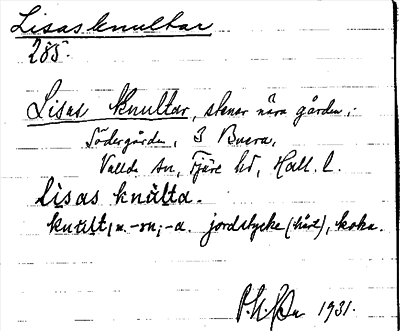 Lisas knultar
285.
Lisas knultar, stenar nära gården,
Södergården, 3 Buera,
Vallda sn, Fjäre hd, Hall. l.
Lisas knulta.
knult, m. -en, -a. jordstycke (hårt), koka.
1931.